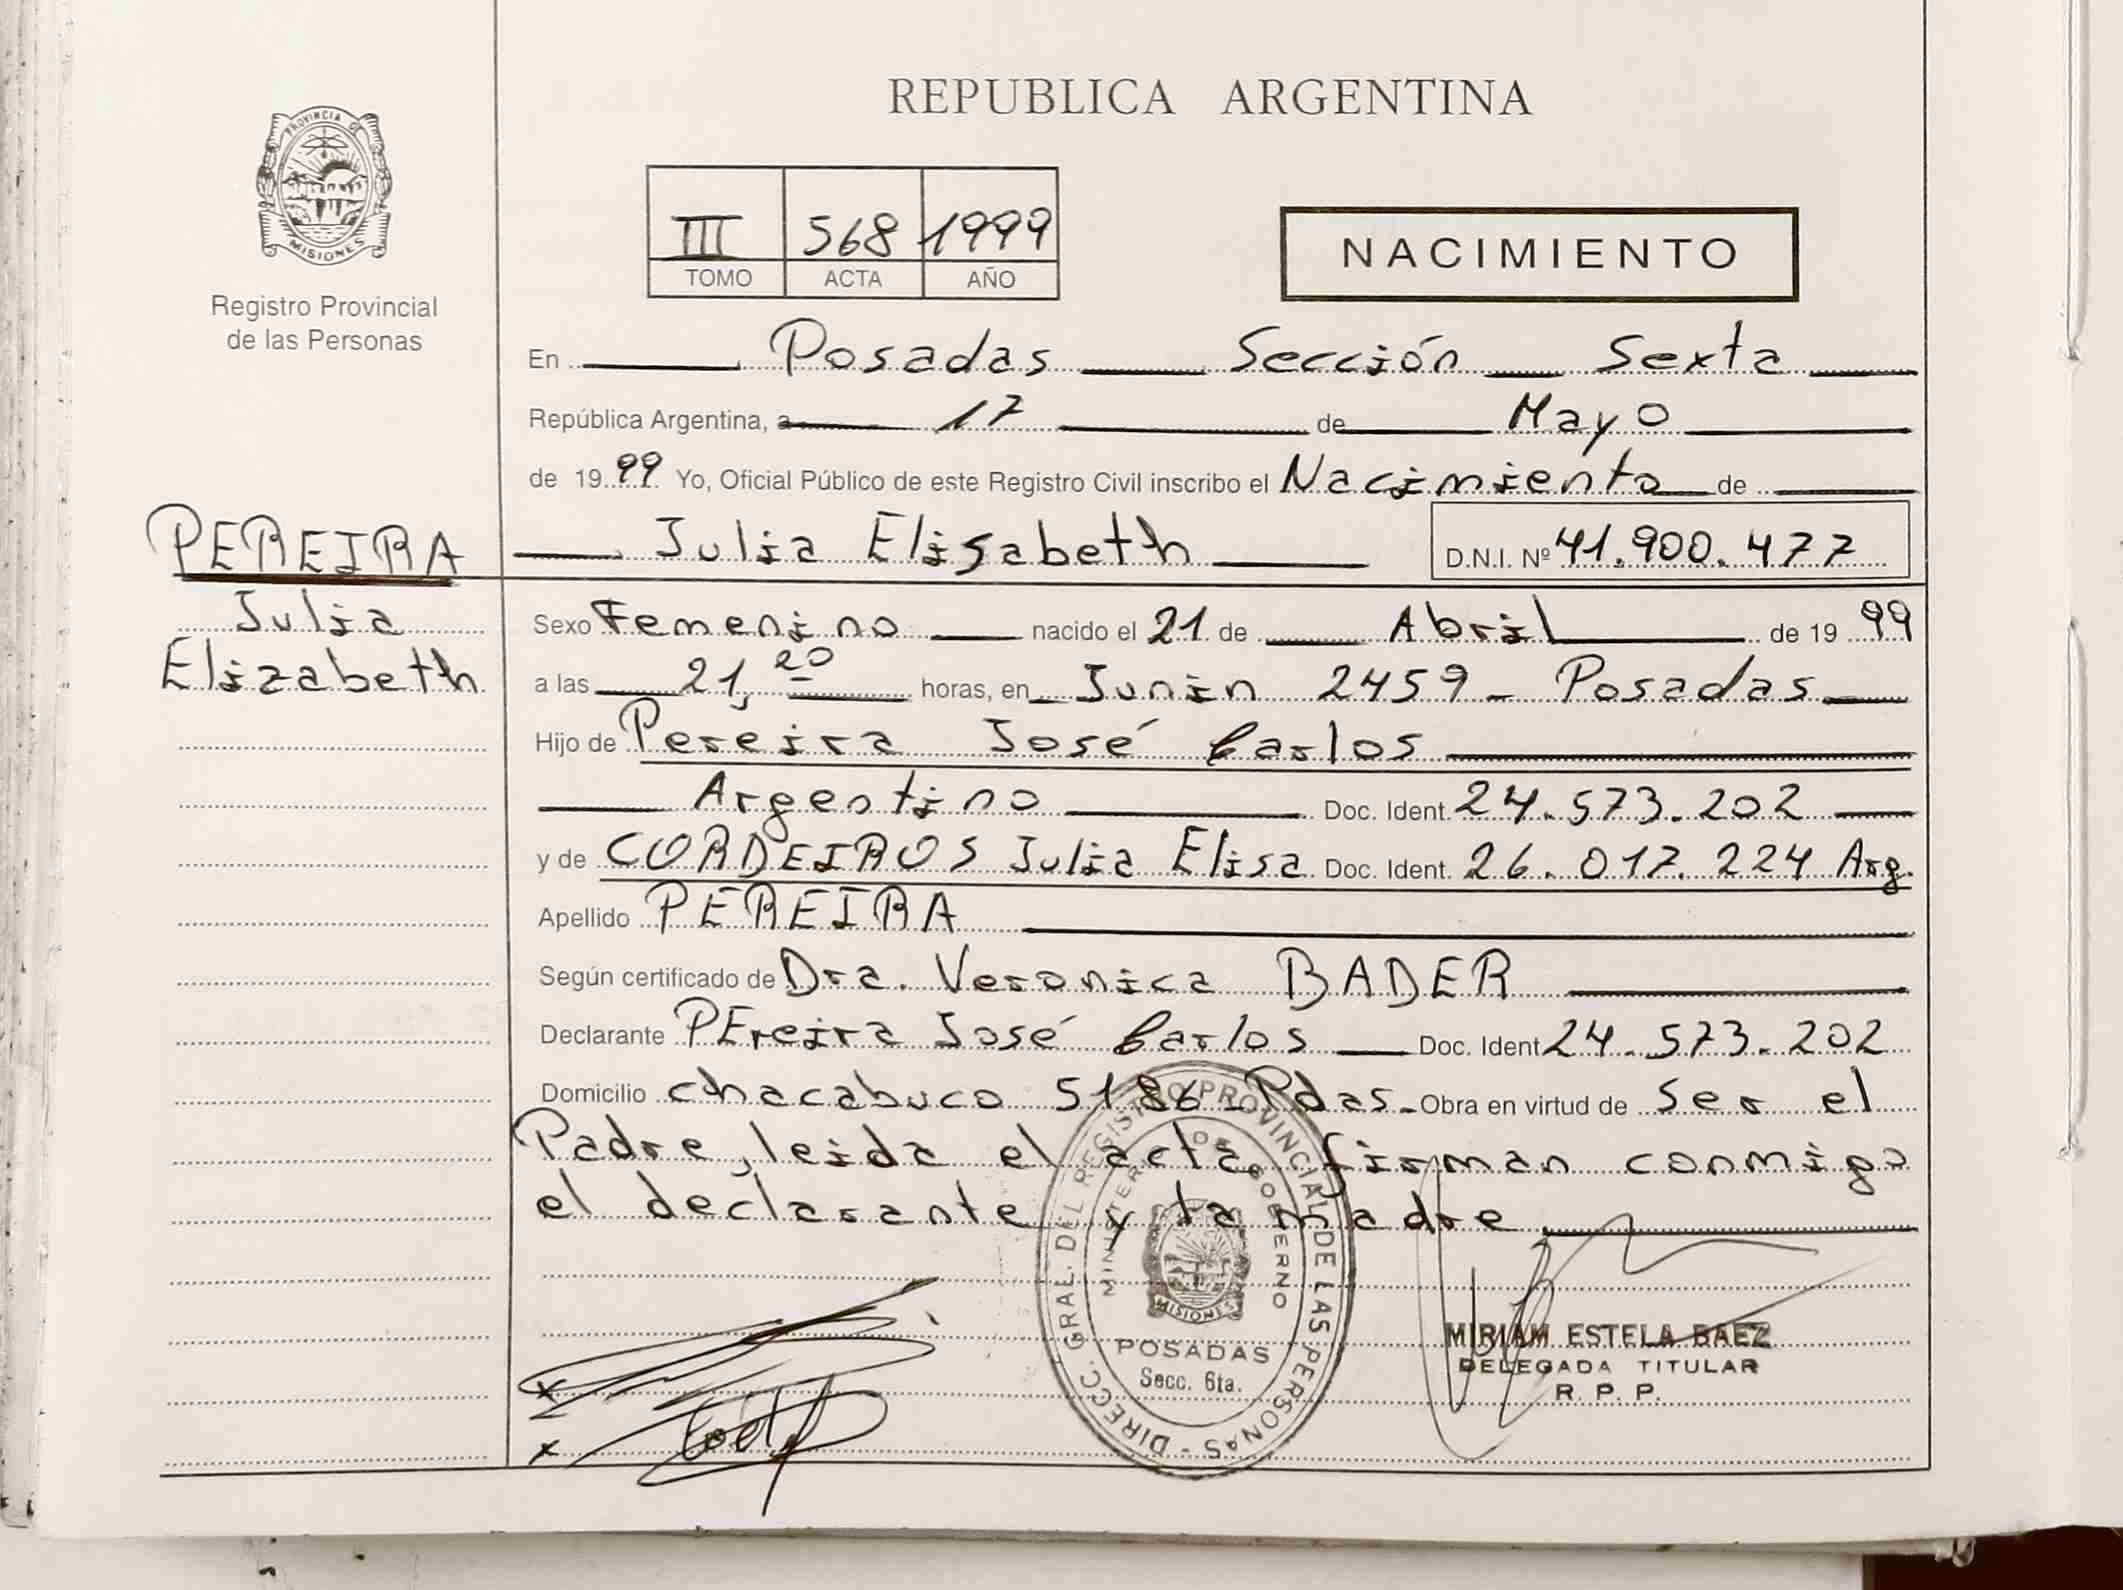 REPUBLICA ARGENTINA
PROVINCIA DE
MISIONES
Registro Provincial
de las Personas
III 568 1999
TOMO ACTA AÑO
NACIMIENTO
En Posadas Sección Sexta
República Argentina, a 17 de Mayo
de 1999 Yo, Oficial Público de este Registro Civil inscribo el Nacimiento de
Julia Elisabeth D.N.I. Nº 41.900.477
PEREIRA
Julia
Elizabeth
Sexo Femenino nacido el 21 de Abril de 1999
a las 21,20 horas, en Junin 2459 - Posadas
Hijo de Pereira José Carlos
Argentino Doc. Ident. 24.573.202
y de CORDEIROS Julia Elisa Doc. Ident. 26.017.224 Arg.
Apellido PEREIRA
Según certificado de Dra. Veronica BADER
Declarante PEreira José Carlos Doc. Ident 24.573.202
Domicilio chacabuco 5186 - Pdas - Obra en virtud de Ser el
Padre, leida el acta, firman conmigo
el declarante y la madre
DIRECC. GRAL. DEL REGISTRO PROVINCIAL DE LAS PERSONAS -
MINISTERIO DE GOBIERNO
MISIONES
POSADAS
Secc. 6ta.
MIRIAM ESTELA BAEZ
DELEGADA TITULAR
R. P. P.
x
x